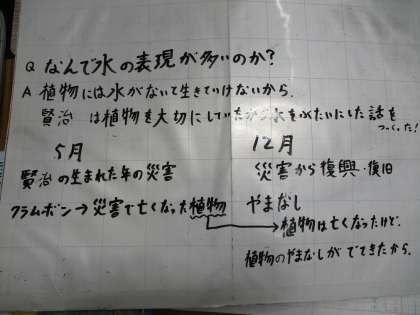 Q なんで水の表現が多いのか?
A 植物には水がないて生きていけないから。
賢治 は植物を大切にしていたから水をみたいにした話を
つくった!
5月
12月
賢治の生まれた年の災害
災害から復興・復旧
クラムボン→災害で亡くなった植物
やまなし
植物は亡くなったけど、
植物のやまなしがでてきたから。